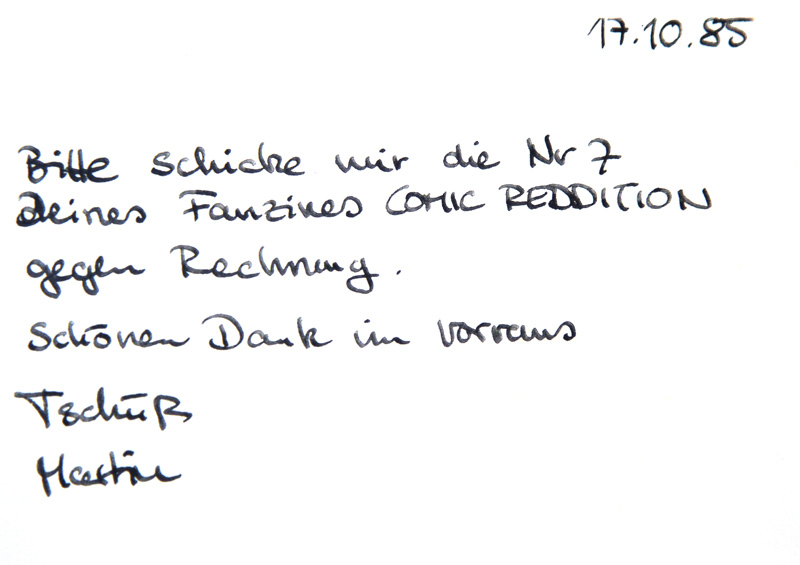 17.10.85
Bitte schicke mir die Nr 7
Deines Fanzines COMIC REDDITION
gegen Rechnung.
Schönen Dank im vorraus
Tschüß
Martin